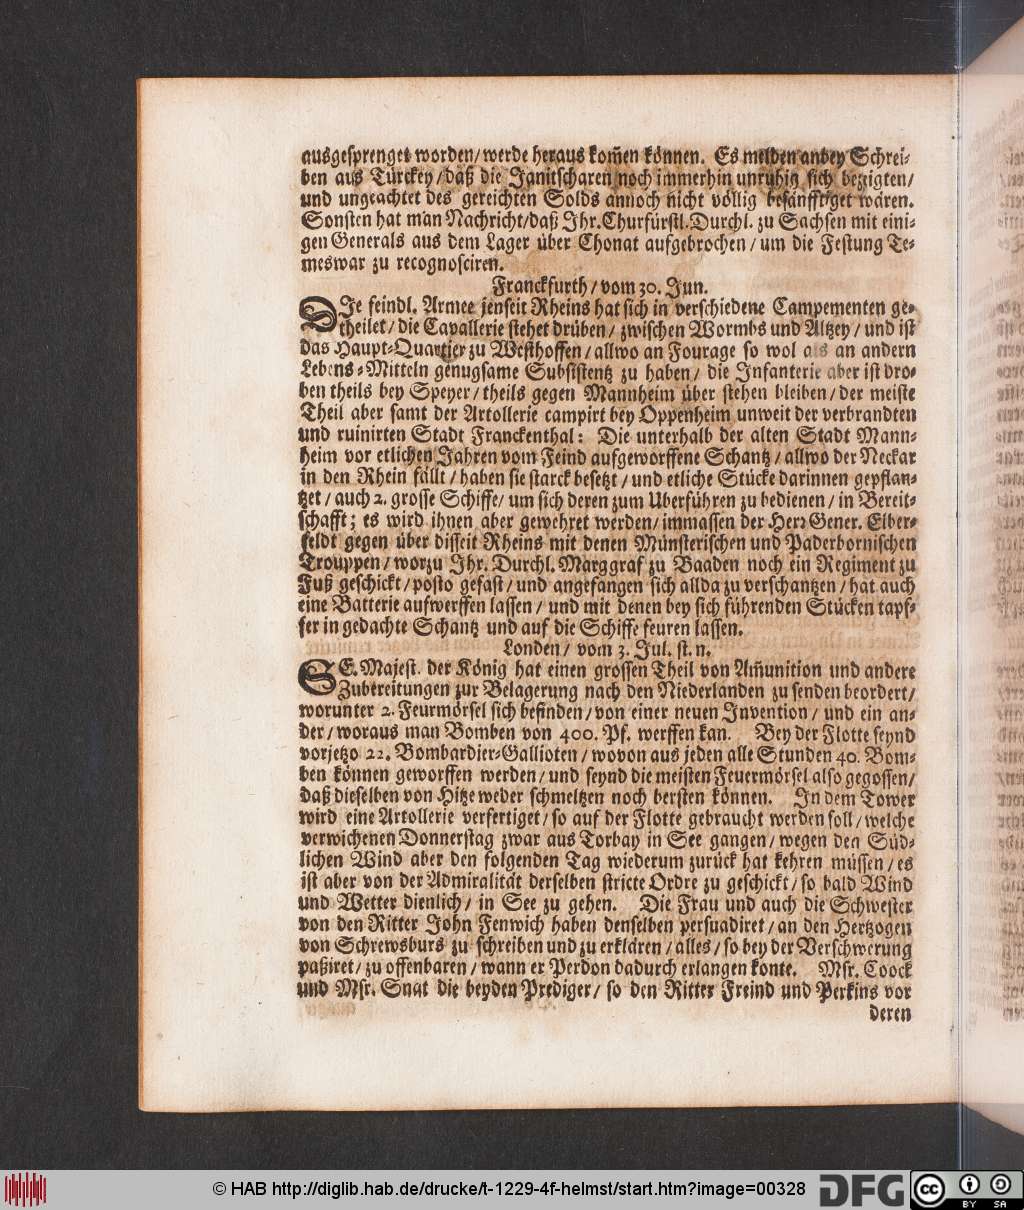 ausgesprenget worden/ werde heraus kom̃en können. Es melden anbey Schrei-
ben aus Türckey/ daß die Janitscharen noch immerhin unruhig sich bezeigten/
und ungeachtet des gereichten Solds annoch nicht völlig besänfftiget wären.
Sonsten hat man Nachricht/ daß Ihr. Churfürstl. Durchl. zu Sachsen mit eini-
gen Generals aus dem Lager über Chonat aufgebrochen/ um die Festung Te-
meswar zu recognosciren.
Franckfurth/ vom 30. Jun.
DIe feindl. Armee jenseit Rheins hat sich in verschiedene Campementen ge-
theilet/ die Cavallerie stehet drüben/ zwischen Wormbs und Altzey/ und ist
das Haupt-Quartier zu Westhoffen/ allwo an Fourage so wol als an andern
Lebens-Mitteln genugsame Subsistentz zu haben/ die Infanterie aber ist dro-
ben theils bey Speyer/ theils gegen Mannheim über stehen bleiben/ der meiste
Theil aber samt der Artollerie campirt bey Oppenheim unweit der verbrandten
und ruinirten Stadt Franckenthal: Die unterhalb der alten Stadt Mann-
heim vor etlichen Jahren vom Feind aufgeworffene Schantz/ allwo der Neckar
in den Rhein fällt/ haben sie starck besetzt/ und etliche Stücke darinnen gepflan-
tzet/ auch 2. grosse Schiffe/ um sich deren zum Uberführen zu bedienen/ in Bereit-
schafft; es wird ihnen aber gewehret werden/ immassen der Herr Gener. Elber-
feldt gegen über disseit Rheins mit denen Münsterischen und Paderbornischen
Trouppen/ worzu Ihr. Durchl. Marggraf zu Baaden noch ein Regiment zu
Fuß geschickt/ posto gefast/ und angefangen sich allda zu verschantzen/ hat auch
eine Batterie aufwerffen lassen/ und mit denen bey sich führenden Stücken tapf-
fer in gedachte Schantz und auf die Schiffe feuren lassen.
Londen/ vom 3. Jul. st. n.
SE. Majest. der König hat einen grossen Theil von Am̃unition und andere
Zubereitungen zur Belagerung nach den Niederlanden zu senden beordert/
worunter 2. Feurmörsel sich befinden/ von einer neuen Invention/ und ein an-
der/ woraus man Bomben von 400. Pf. werffen kan. Bey der Flotte seynd
vorjetzo 22. Bombardier-Gallioten/ wovon aus jeden alle Stunden 40. Bom-
ben können geworffen werden/ und seynd die meisten Feuermörsel also gegossen/
daß dieselben von Hitze weder schmeltzen noch bersten können. In dem Tower
wird eine Artollerie verfertiget/ so auf der Flotte gebraucht werden soll/ welche
verwichenen Donnerstag zwar aus Torbay in See gangen/ wegen den Süd-
lichen Wind aber den folgenden Tag wiederum zurück hat kehren müssen/ es
ist aber von der Admiralität derselben stricte Ordre zu geschickt/ so bald Wind
und Wetter dienlich/ in See zu gehen. Die Frau und auch die Schwester
von den Ritter John Fenwich haben denselben persuadiret/ an den Hertzogen
von Schrewsburs zu schreiben und zu erklären/ alles/ so bey der Verschwerung
paßiret/ zu offenbaren/ wann er Perdon dadurch erlangen konte. Msr. Coock
und Msr. Snat die beyden Prediger/ so den Ritter Freind und Perkins vor
deren
© HAB http://diglib.hab.de/drucke/t-1229-4f-helmst/start.htm?image=00328
DFG
cc BY SA